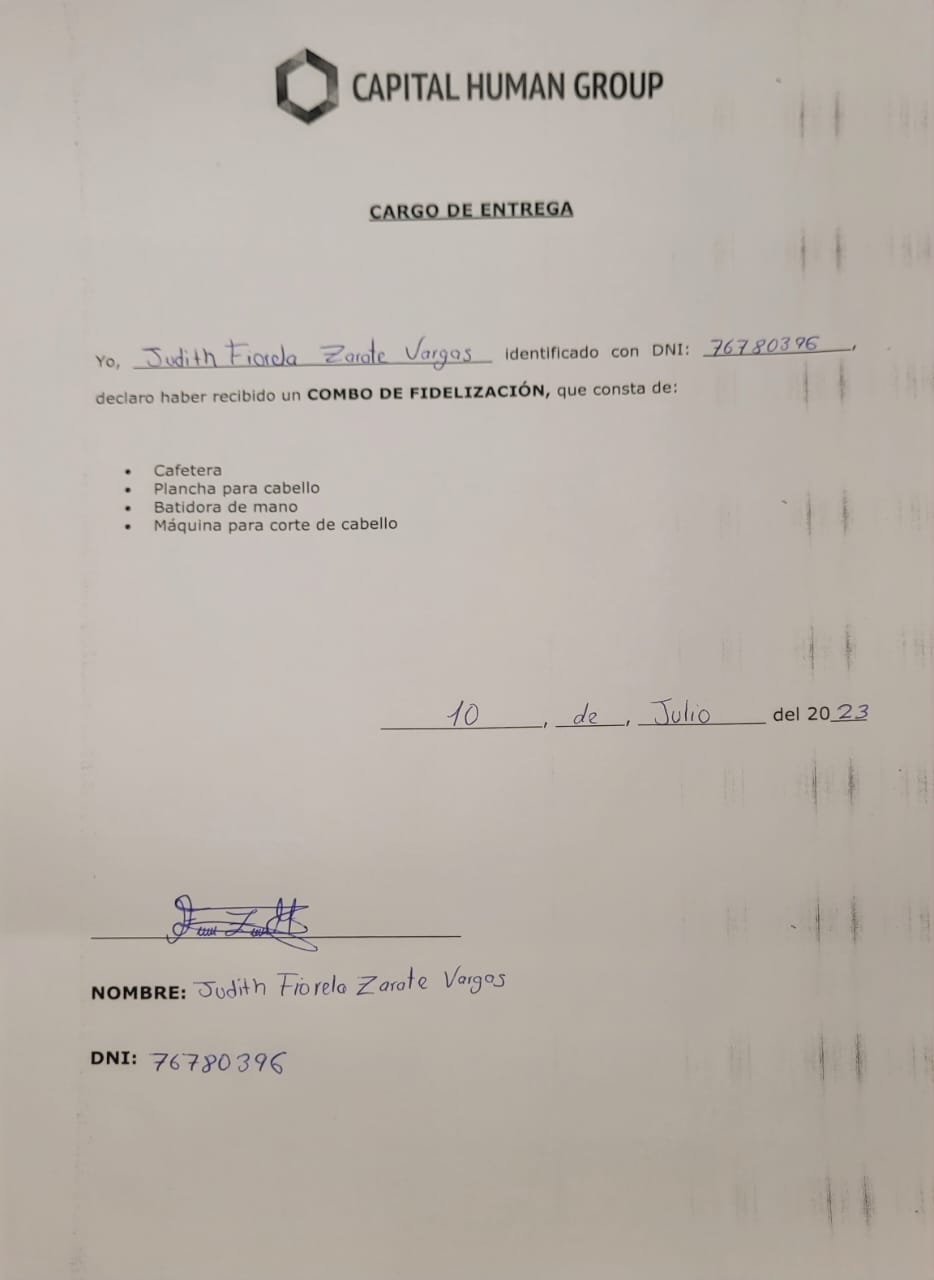 CAPITAL HUMAN GROUP
CARGO DE ENTREGA
Yo, Judith Fiorela Zarate Vargas identificado con DNI: 76780396,
declaro haber recibido un COMBO DE FIDELIZACIÓN, que consta de:
• Cafetera
• Plancha para cabello
• Batidora de mano
• Máquina para corte de cabello
10, de, Julio del 2023
NOMBRE: Judith Fiorela Zarate Vargas
DNI: 76780396